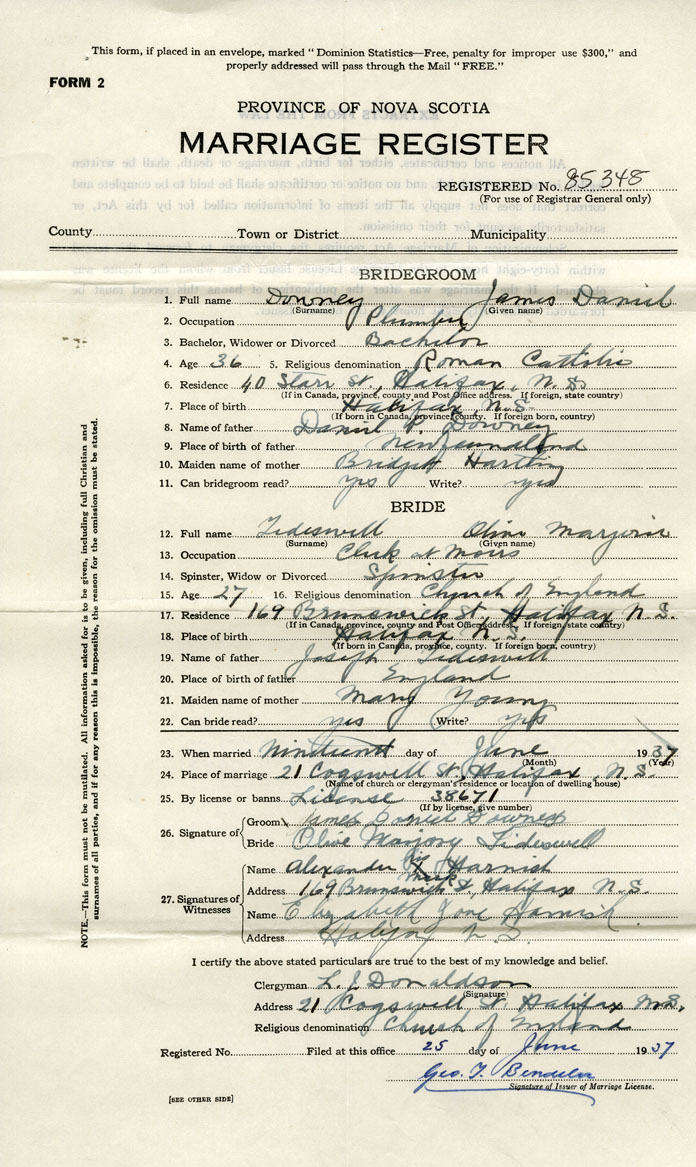 This form, if placed in an envelope, marked "Dominion Statistics—Free, penalty for improper use $300," and
properly addressed will pass through the Mail "FREE."
FORM 2
PROVINCE OF NOVA SCOTIA
MARRIAGE REGISTER
REGISTERED No. 85348
(For use of Registrar General only)
County Town or District Municipality
BRIDEGROOM
1. Full name Downey James Daniel
(Surname) (Given name)
2. Occupation Plumber
3. Bachelor, Widower or Divorced Bachelor
4. Age 36 5. Religious denomination Roman Catholic
6. Residence 40 Starr St., Halifax, N.S.
(If in Canada, province, county and Post Office address. If foreign, state country)
7. Place of birth Halifax, N.S.
(If born in Canada, province, county. If foreign born, country)
8. Name of father Daniel P. Downey
9. Place of birth of father Newfoundland
10. Maiden name of mother Bridget
11. Can bridegroom read? yes Write? yes
BRIDE
12. Full name Tideswell Olive Marjorie
(Surname) (Given name)
13. Occupation Clerk at Moirs
14. Spinster, Widow or Divorced Spinster
15. Age 27 16. Religious denomination Church of England
17. Residence 169 Brunswick St., Halifax N.S.
(If in Canada, province, county and Post Office address. If foreign, state country)
18. Place of birth Halifax N.S.
(If born in Canada, province, county. If foreign born, country)
19. Name of father Joseph Tideswell
20. Place of birth of father England
21. Maiden name of mother Mary Young
22. Can bride read? yes Write? yes
23. When married Nineteenth day of June 1937
(Month) (Year)
24. Place of marriage 21 Cogswell St., Halifax, N.S.
(Name of church or clergyman's residence or location of dwelling house)
25. By license or banns License 38671
(If by license, give number)
26. Signature of Groom James Daniel Downey
Bride Olive Marjory Tideswell
27. Signatures of Witnesses
Name Alexander his X mark Harnish
Address 169 Brunswick St, Halifax N.S.
Name Elizabeth Jane Harnish
Address Halifax N.S.
I certify the above stated particulars are true to the best of my knowledge and belief.
Clergyman L. J. Donaldson
(Signature)
Address 21 Cogswell St. Halifax N.S.
Religious denomination Church of England
Registered No. Filed at this office 25 day of June 1937
Geo. T.
Signature of Issuer of Marriage License.
[SEE OTHER SIDE]
NOTE.—This form must not be mutilated. All information asked for is to be given, including full Christian and
surnames of all parties, and if for any reason this is impossible, the reason for the omission must be stated.